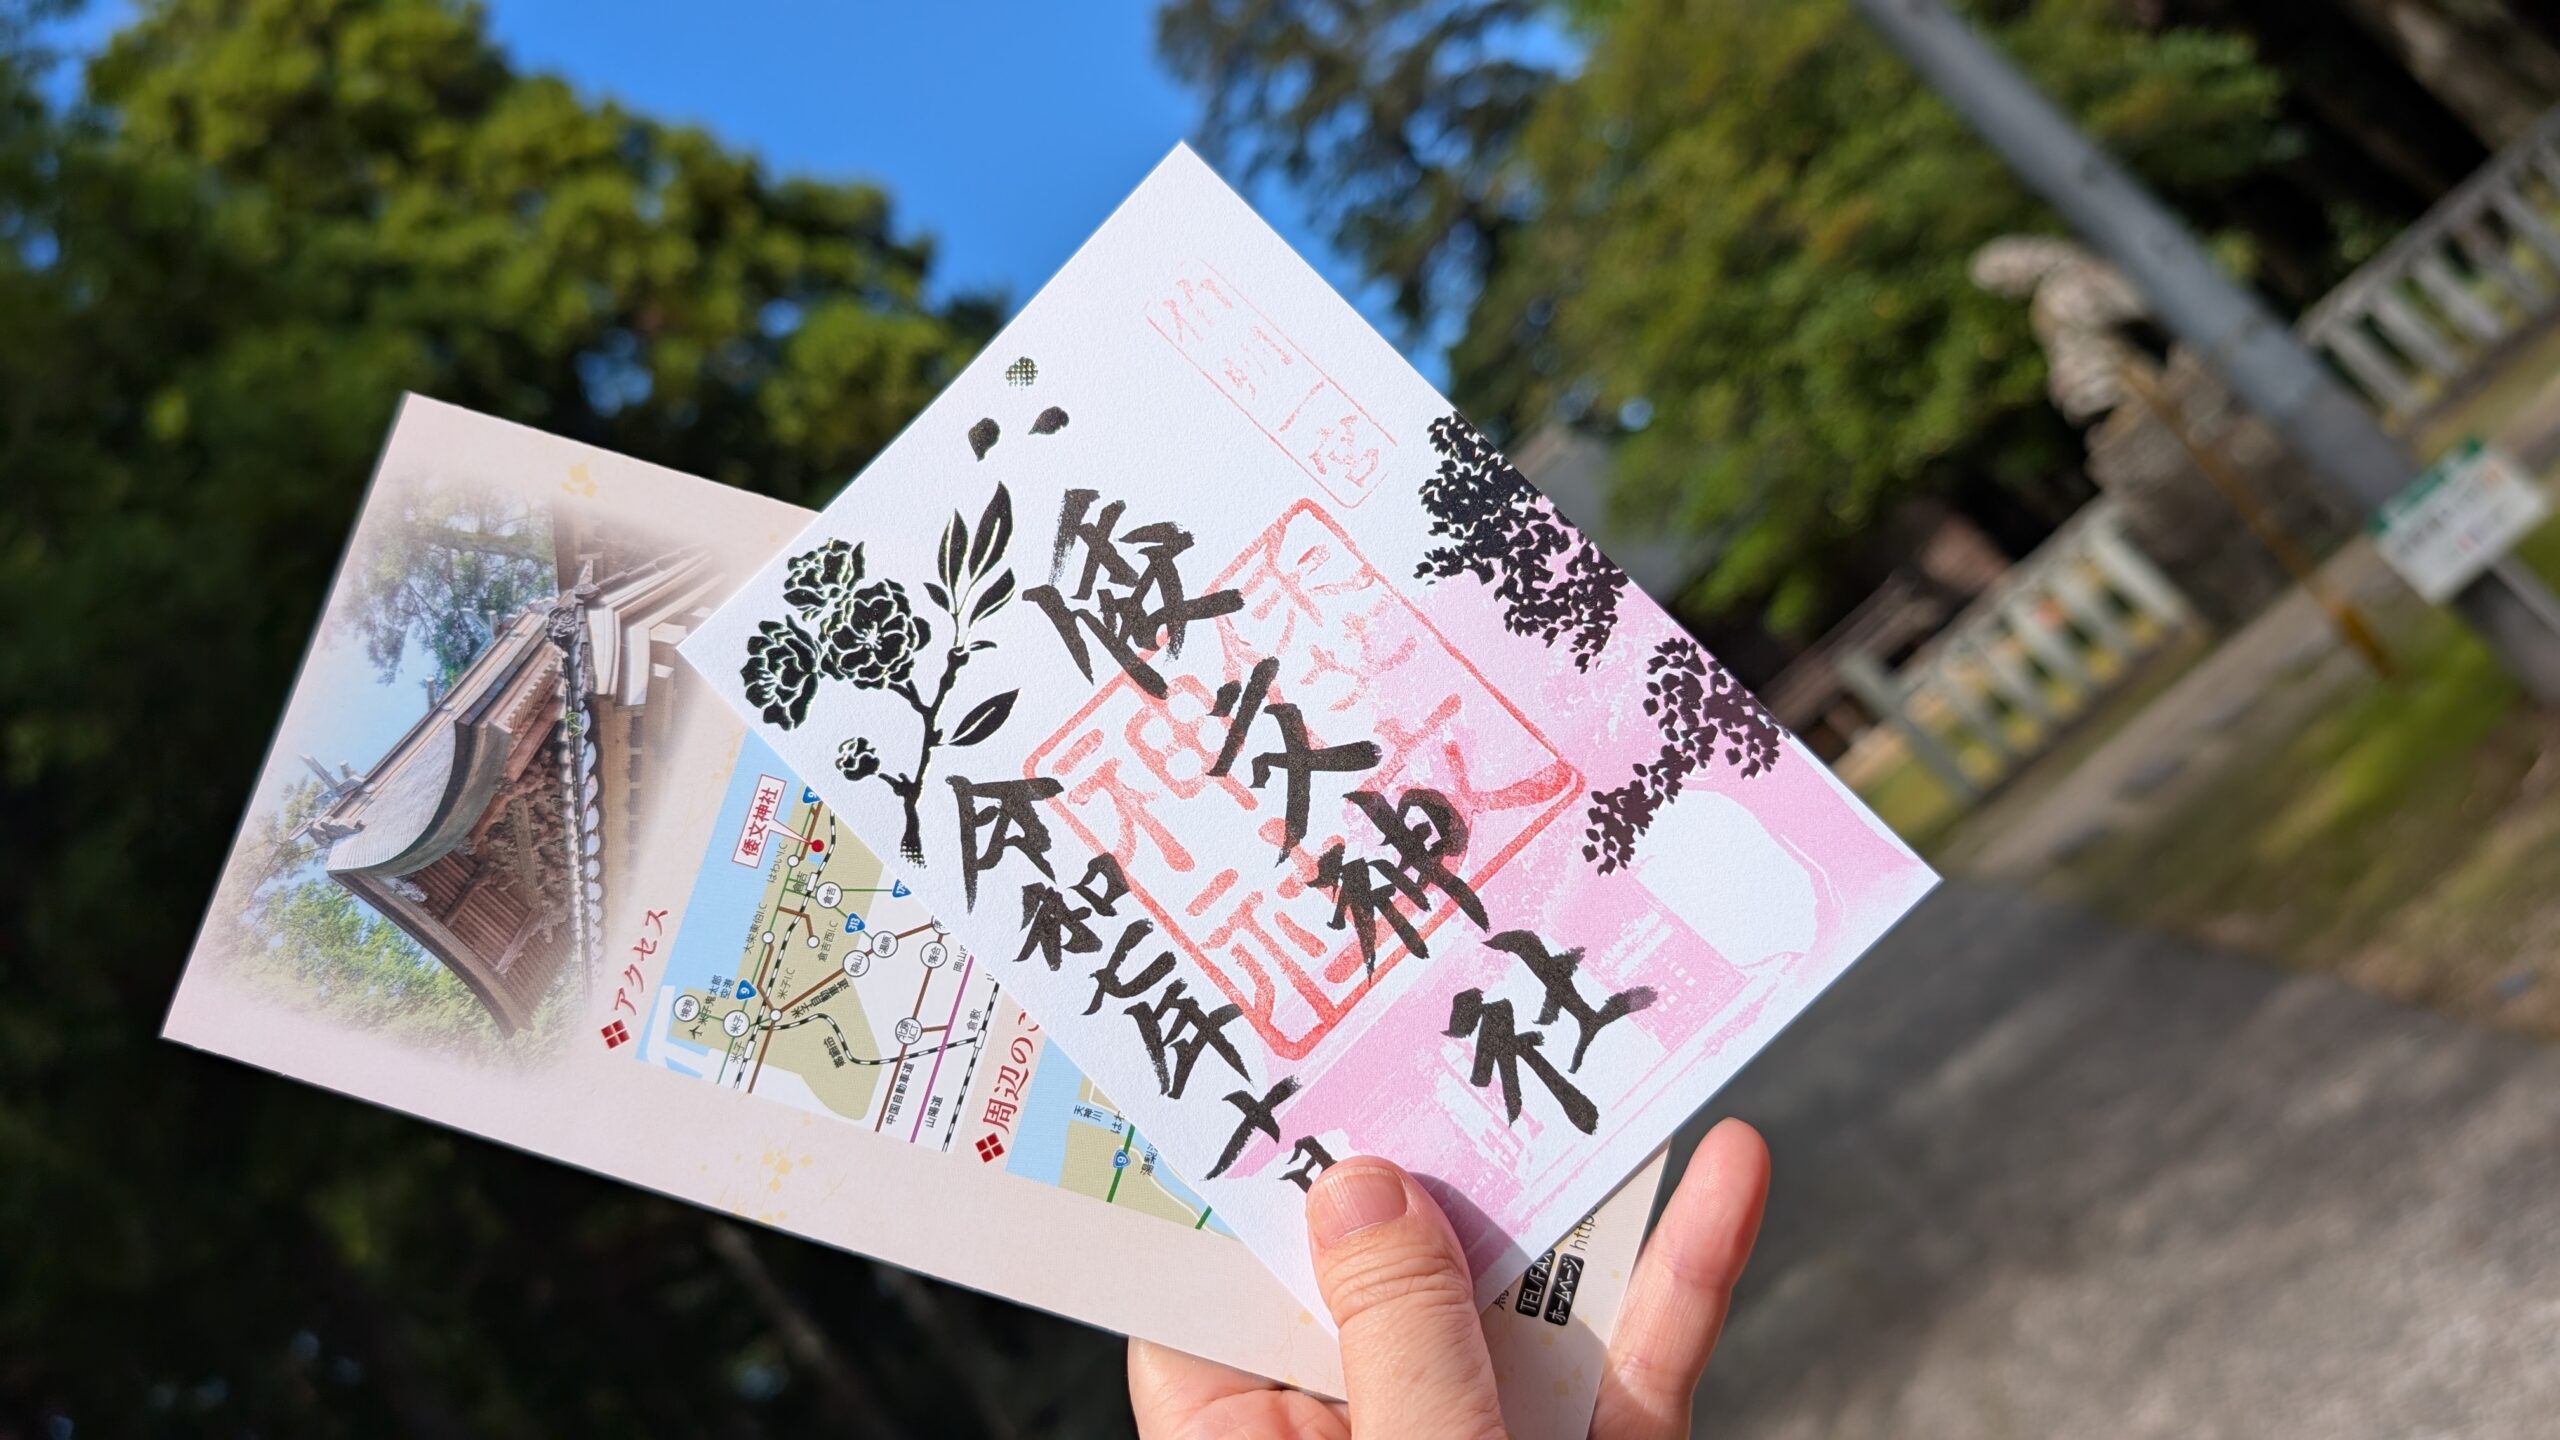 伯耆一宮
倭文神社
倭文神社
令和七年十月
アクセス
倭文神社
はわいI.C
倉吉
大栄東伯I.C
倉吉西I.C
313
9
米子鬼太郎
空港
境港
米子
米子I.C
米子自動車道
蒜山
湯原
落合
北房JCT
岡山
倉敷
中国自動車道
山陽道
周辺のご
天神川
はわ
9
湯梨
TEL/FAX
ホームページ http